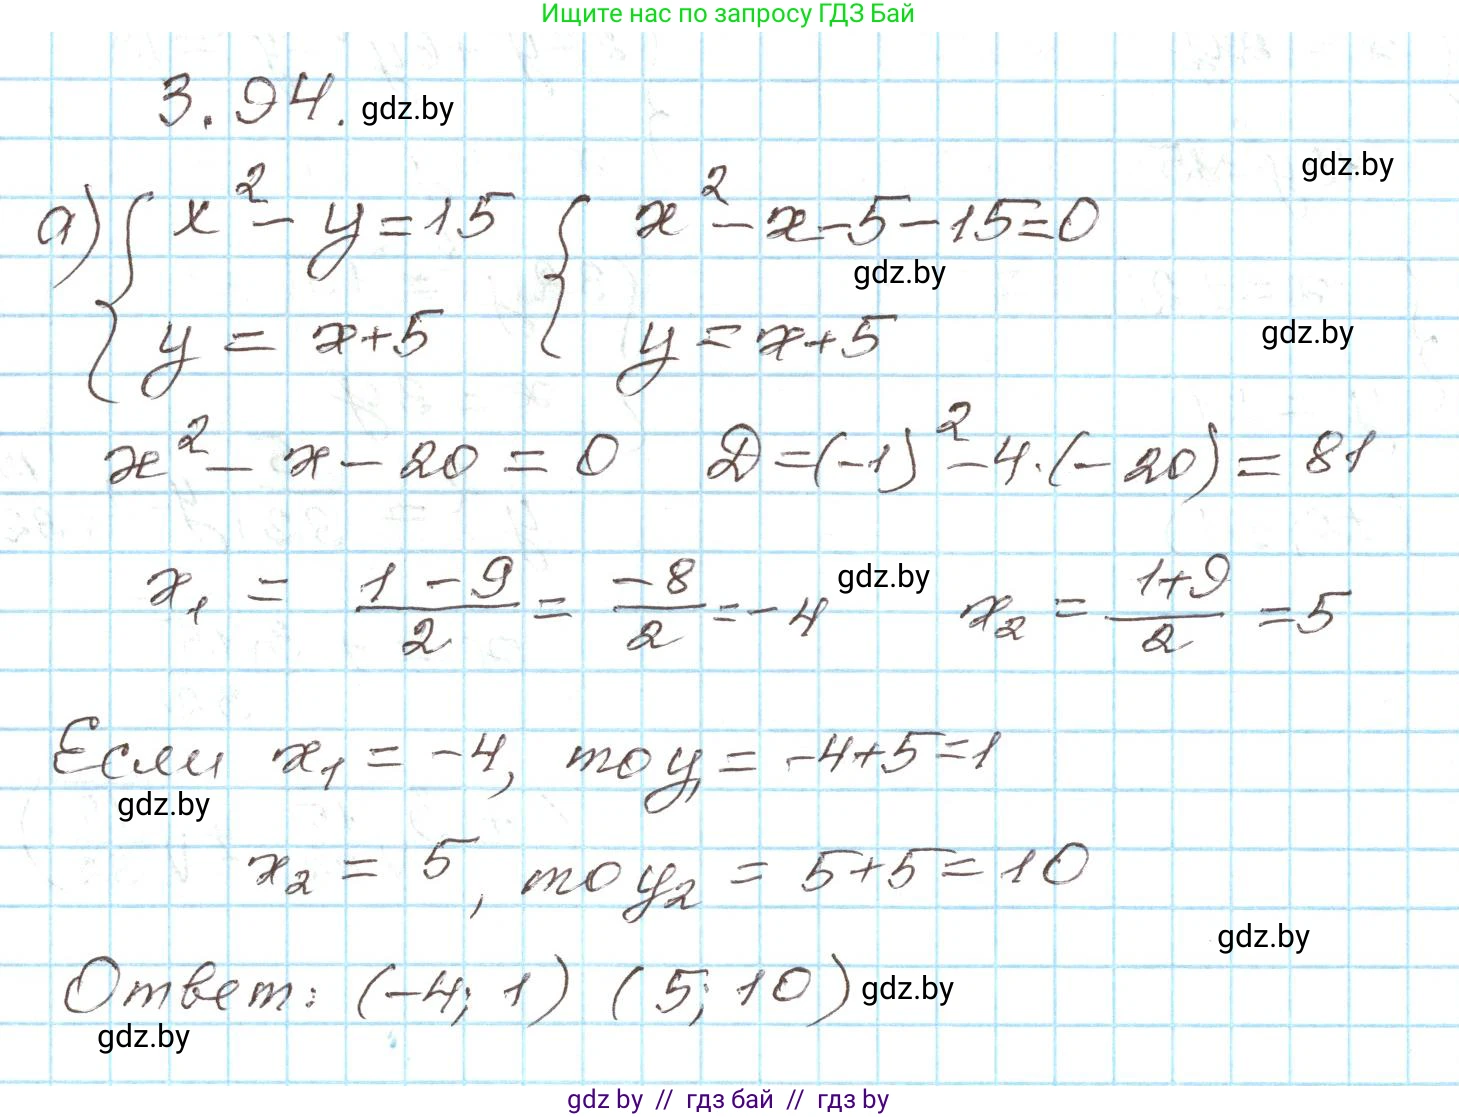 Ищите нас по запросу ГДЗ Бай
3.94. gdz.by
gdz.by
а) { x² - y = 15 { x² - x - 5 - 15 = 0
gdz.by
y = x+5 y = x+5
gdz.by
x² - x - 20 = 0 D = (-1)² - 4·(-20) = 81
x₁ = (1 - 9)/2 = -8/2 = -4 gdz.by x₂ = (1+9)/2 = 5
Если x₁ = -4, то y₁ = -4+5 = 1
gdz.by
x₂ = 5, то y₂ = 5+5 = 10
gdz.by
Ответ: (-4; 1) (5; 10) gdz.by
gdz.by
gdz by // гдз бай // гдз by